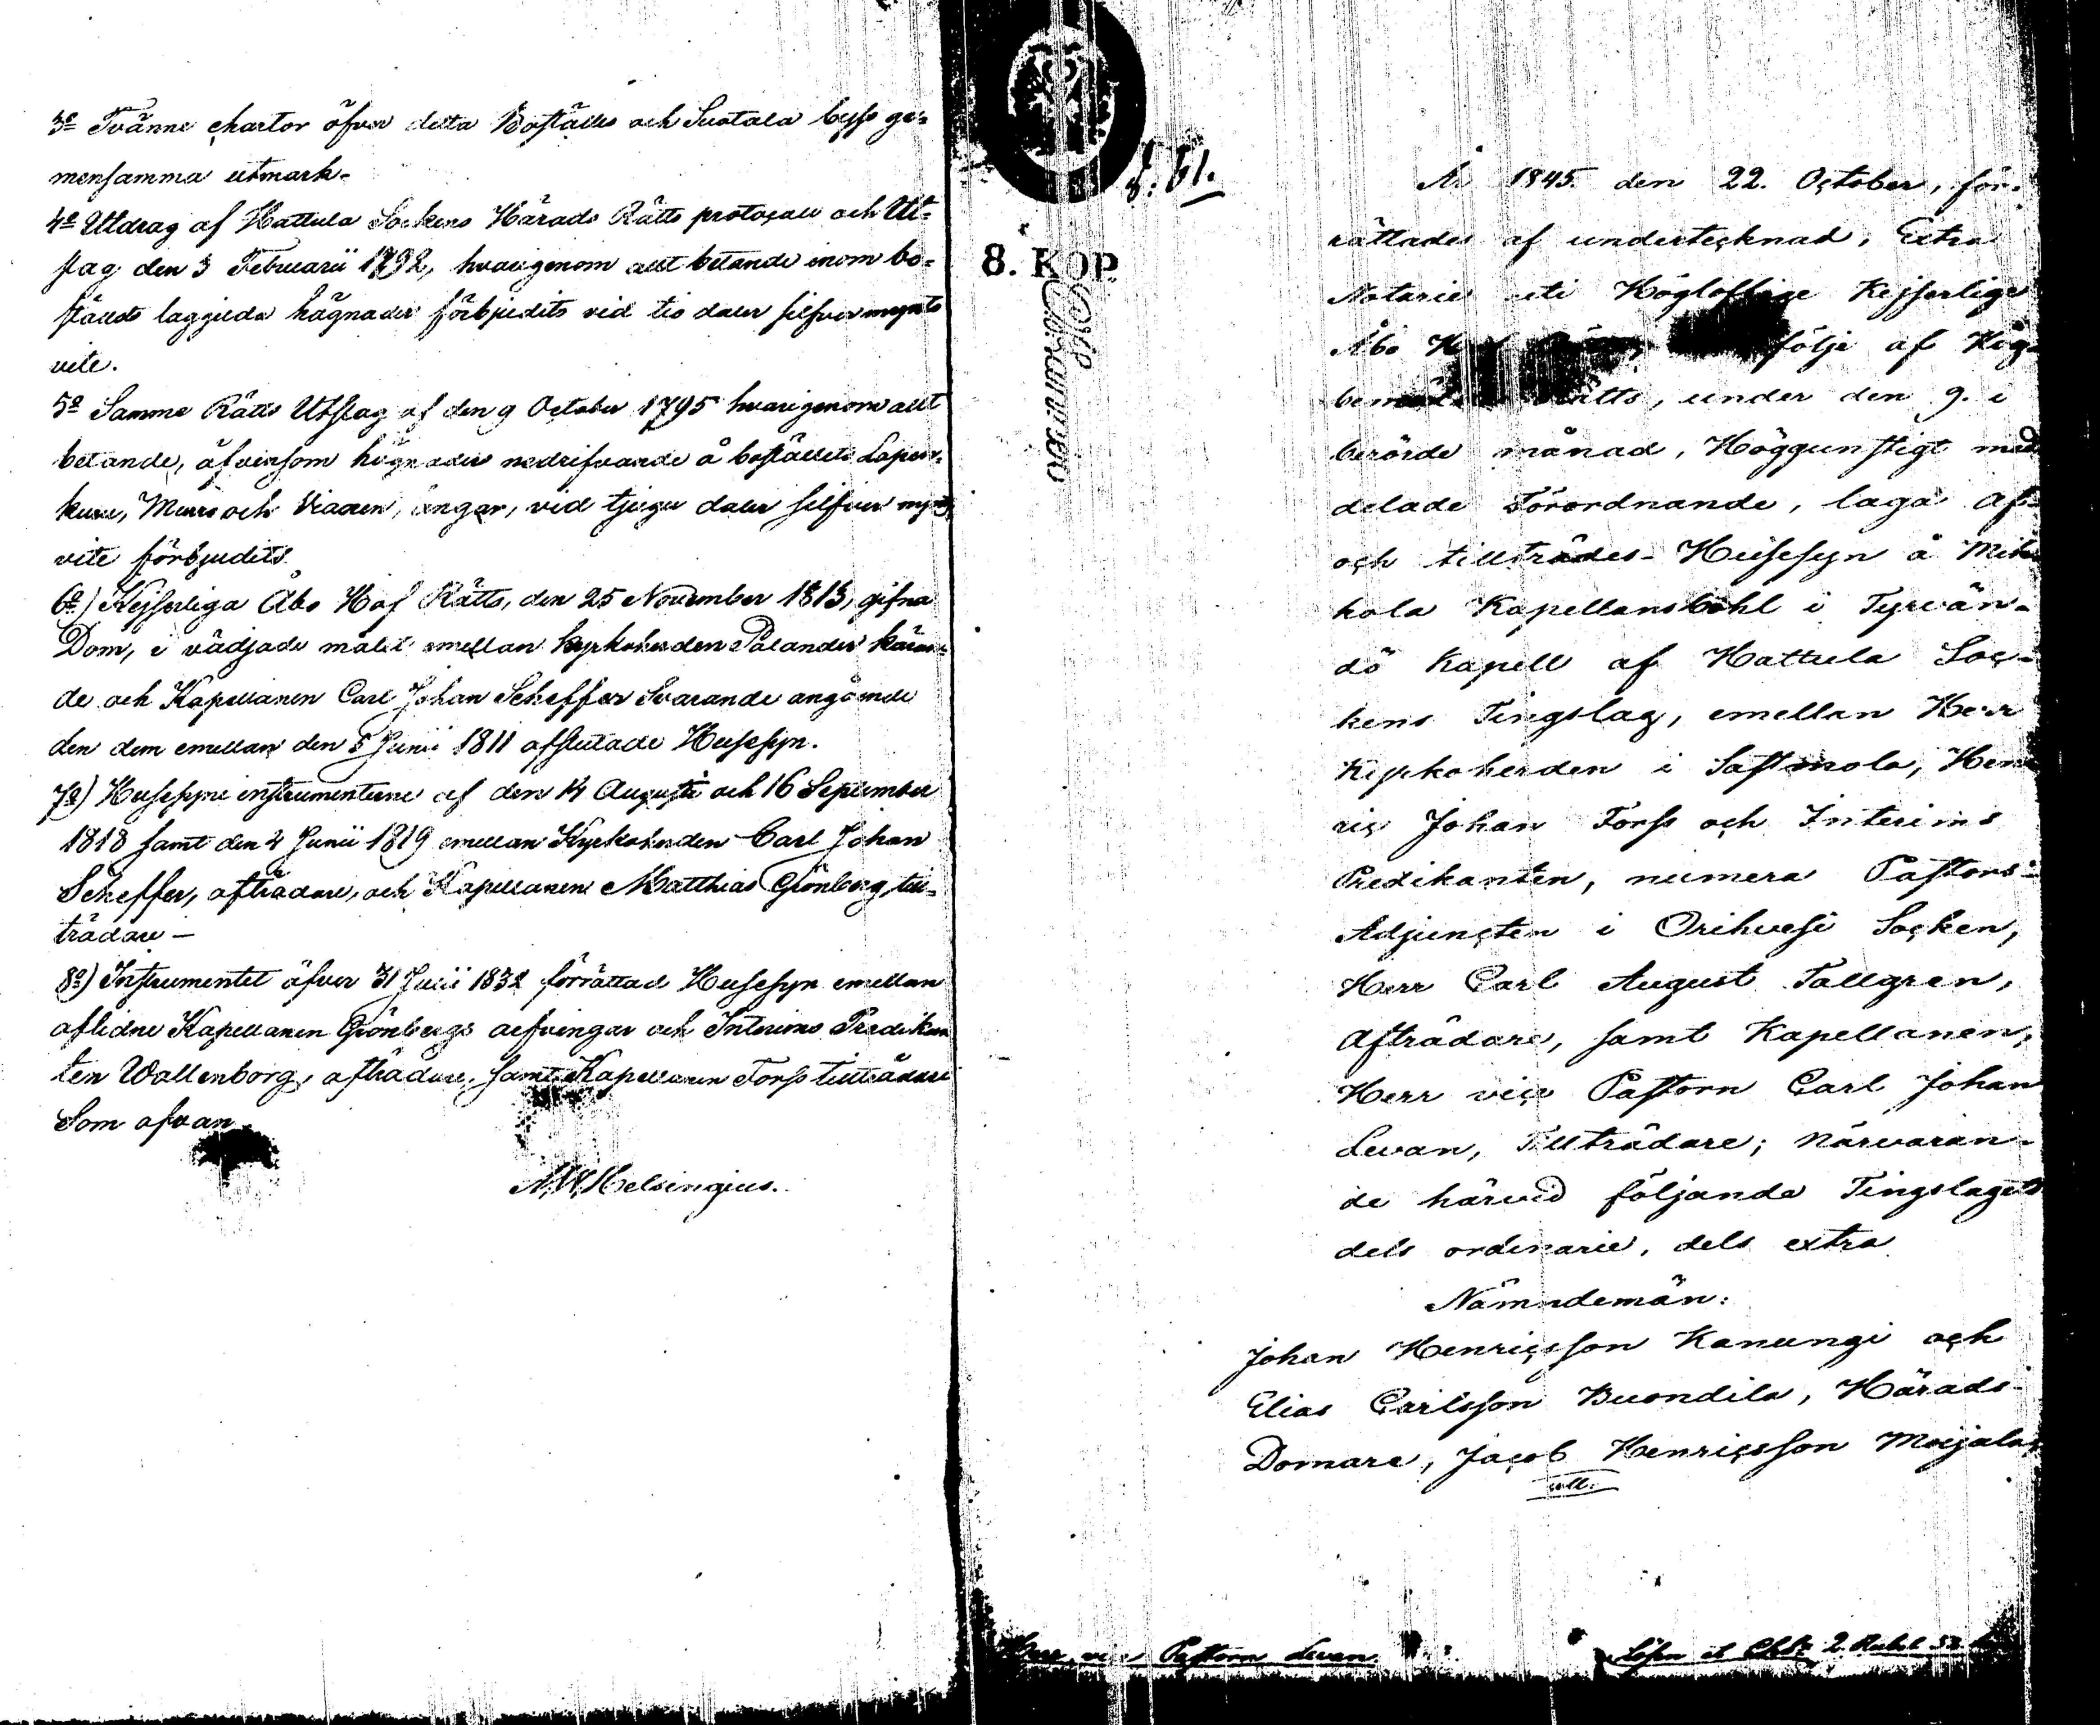 3o Tvänne chartor öfver detta Boställes och Suotala byss ge-
mensamma utmark.
4o Utdrag af Hattula Sockens Härads Rätts protocoll och Ut-
slag den 3 Februarii 1792, hvarigenom allt betande inom bo-
ställets laggilda hägnader förbjudits vid tio daler silfver mynts
vite.
5o Samme Rätts Utslag af den 9 October 1795 hvarigenom allt
betande, äfvensom hägnaders nedrifvande å boställets
Murro och ängar, vid tjugu daler silfver mynts
vite förbjudits.
6o) Kejserliga Åbo Hof Rätts, den 25 November 1813, gifna
Dom, i vädjade målet emellan kyrkoherden Palander käran-
de och Kapellanen Carl Johan Scheffer Svarande angående
den dem emellan den 5 Junii 1811 afslutade Husesyn.
7o) Husesyns instrumenterne af den 14 Augusti och 16 September
1818 samt den 2 Junii 1819 emellan Kyrkoherden Carl Johan
Scheffer, afträdare, och Kapellanen Matthias Grönberg, till-
trädare —
8o) Instrumentet öfver 31 Julii 1832 förrättad Husesyn emellan
aflidne Kapellanen Grönbergs arfvingar och Interims Predikan
ten Wallenborg, afträdare, samt Kapellanen Forss tillträdare
Som ofvan
A.W. Helsingius.
8. KOP.
§. 61.
År 1845. den 22. October, för-
rättades af undertecknad, Extra
Notarie uti Högloflige Kejserlige
Åbo följe af Hög-
Rätts, under den 9. i
berörde månad, Höggunstigt med
delade Förordnande, laga Af-
och tillträdes-Husesyn å Mik
kola Kapellansbohl i Tyrvän-
dö Kapell af Hattula Soc-
kens Tingslag, emellan Herr
Kyrkoherden i Sastmola, Hen
ric Johan Forss och Interims
Predikanten, numera Pastors-
Adjuncten i Orihvesi Socken,
Herr Carl August Tallgren,
Afträdare, samt Kapellanen,
Herr vice Pastorn Carl Johan
Levan, Tillträdare; närvaran-
de härvid följande Tingslagets
dels ordinarie, dels extra
Nämndemän:
Johan Henricsson Kanungi och
Elias Carlsson Buondila, Härads-
Domare, Jacob Henricsson Moijala,
Herr vice Pastorn Levan.
Lösen et Chte 2 Rubel 52